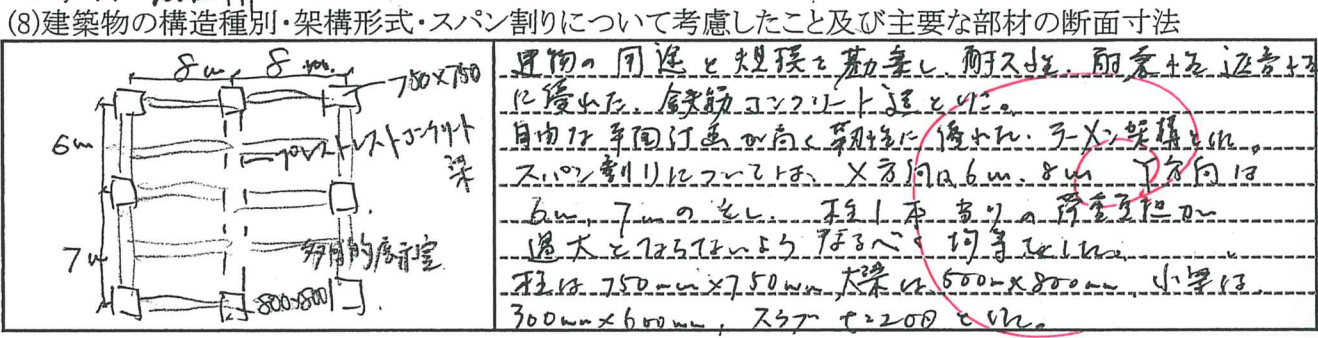 (8)建築物の構造種別・架構形式・スパン割りについて考慮したこと及び主要な部材の断面寸法
8m 8m
700×700
6m
プレストレストコンクリート
梁
7m
多目的展示室
800×800
建物の用途と規模を勘案し、耐久性、耐震性、遮音性
に優れた、鉄筋コンクリート造とした。
自由な平面計画が高く靭性に優れた、ラーメン架構とした。
スパン割りについては、X方向は6m、8m Y方向は
6m、7mの 柱1本当りの荷重負担が
過大とならないよう なるべく均等とした。
柱は750mm×750mm、大梁は、500×800mm、小梁は、
300mm×600mm、スラブ t=200とした。